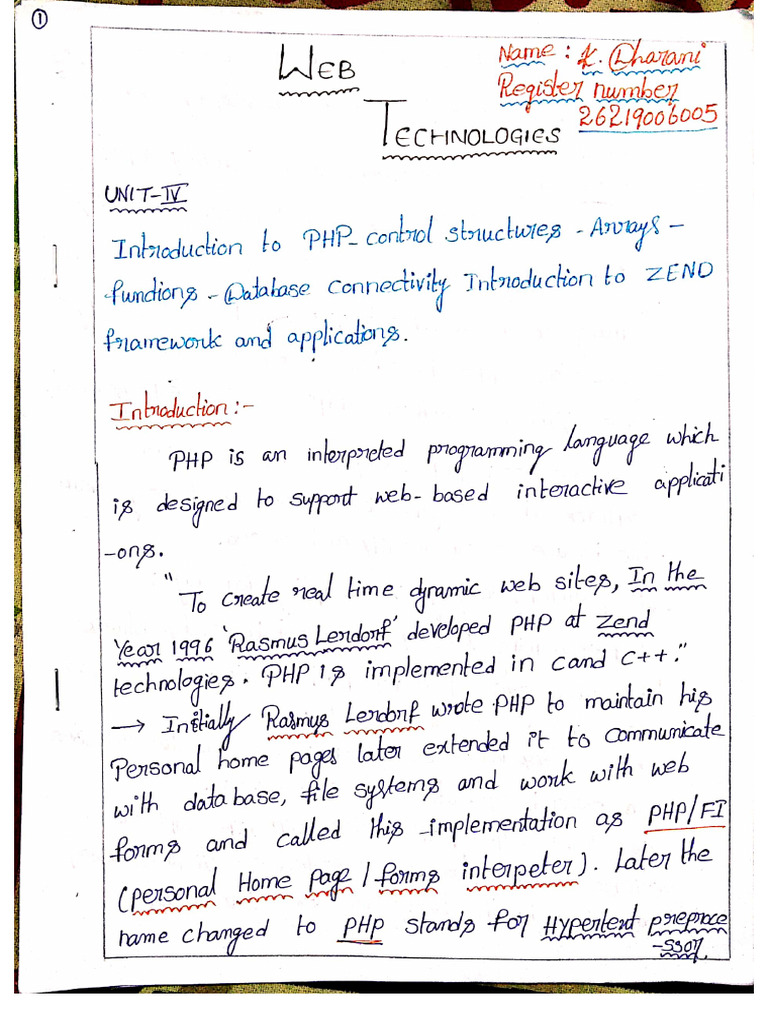 1
Web
Technologies
Name : K. Dharani
Register number
26219006005
UNIT-IV
Introduction to PHP-control structures - Arrays -
functions - Database connectivity Introduction to ZEND
framework and applications.
Introduction :-
PHP is an interpreted programming language which
is designed to support web-based interactive applicati
-ons.
"To create real time dynamic web sites, In the
Year 1996 'Rasmus Lerdorf' developed PHP at Zend
technologies. PHP is implemented in c and c++."
→ Initially Rasmus Lerdorf wrote PHP to maintain his
Personal home pages later extended it to communicate
with database, file systems and work with web
forms and called this -implementation as PHP/FI
(personal Home page / forms interpeter). Later the
name changed to PHP stands for Hypertext preproce
-ssor.